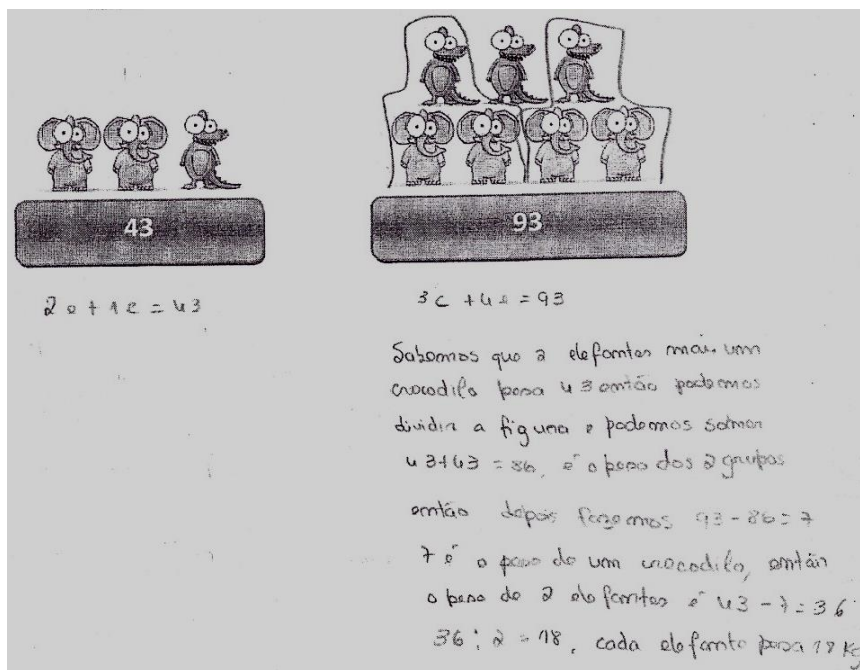 43
93
2e+1c=43
3c+4e=93
Sabemos que 2 elefantes mais um
crocodilo pesa 43 então podemos
dividir a figura e podemos somar
43+43=86, é o peso dos 2 grupos
então depois fazemos 93-86=7
7 é o peso de um crocodilo, então
o peso de 2 elefantes é 43-7=36
36:2=18, cada elefante pesa 18 Kg